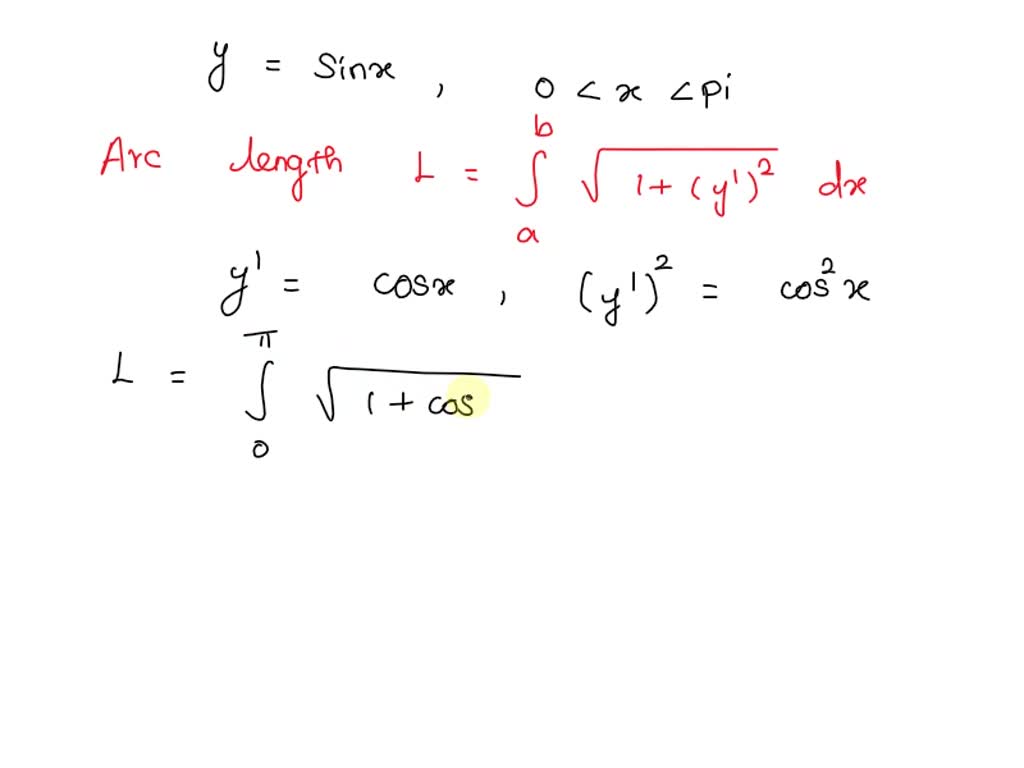 y = sinx , 0 < x < pi
Arc length L = ∫_a^b √(1+(y')²) dx
y' = cosx , (y')² = cos²x
L = ∫_0^π √(1 + cos